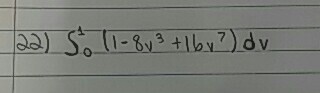 22) ∫₀¹ (1-8v³+16v⁷) dv